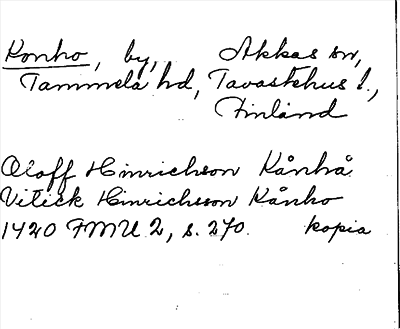 Konho, by, Akkas sn,
Tammela hd, Tavastehus l.,
Finland
Oloff Hinrichson Kånhå
Vilick Hinrichsson Kånho
1420 FMU 2, s. 270. kopia